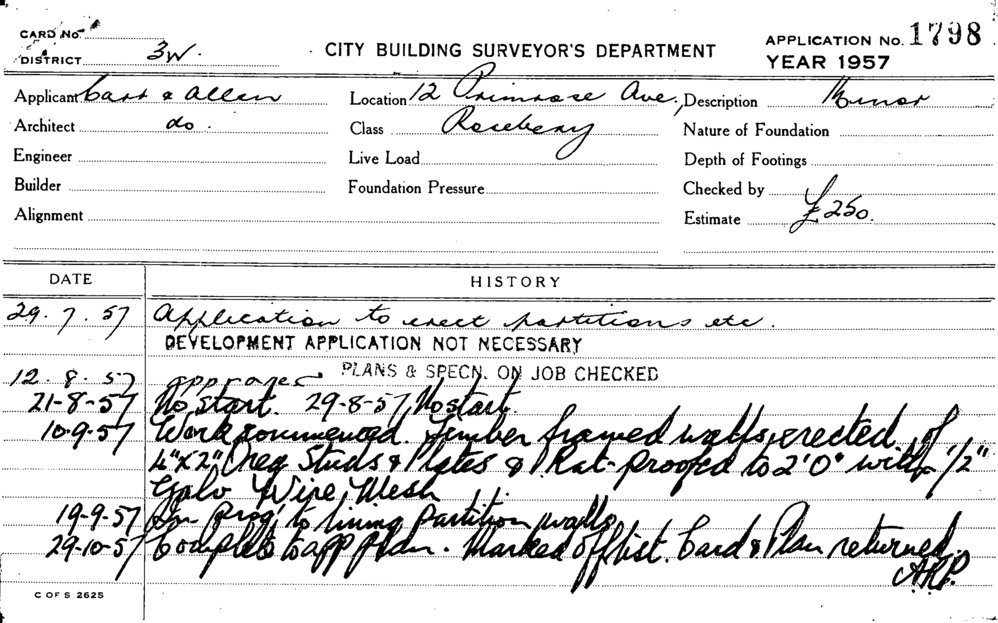 CARD No.
DISTRICT 3W.
CITY BUILDING SURVEYOR'S DEPARTMENT
APPLICATION No. 1798
YEAR 1957
Applicant Carr & Allen
Location 12 Primrose Ave.,
Description Minor
Architect do.
Class Rosebery
Nature of Foundation
Engineer
Live Load
Depth of Footings
Builder
Foundation Pressure
Checked by
Alignment
Estimate £250.
DATE HISTORY
29.7.57 Application to erect partitions etc.
DEVELOPMENT APPLICATION NOT NECESSARY
12.8.57 approved PLANS & SPECN. ON JOB CHECKED
21-8-57 No start. 29-8-57, No start.
10-9-57 Work commenced. Timber framed walls, erected of
4"x2" Oreg Studs & Plates & Rat-proofed to 2'0" with 1/2"
Galv Wire Mesh
19-9-57 In prog' to lining partition walls
29-10-57 Complete to app plan. Marked off list. Card & Plan returned.
A.R.P.
C OF S 2625